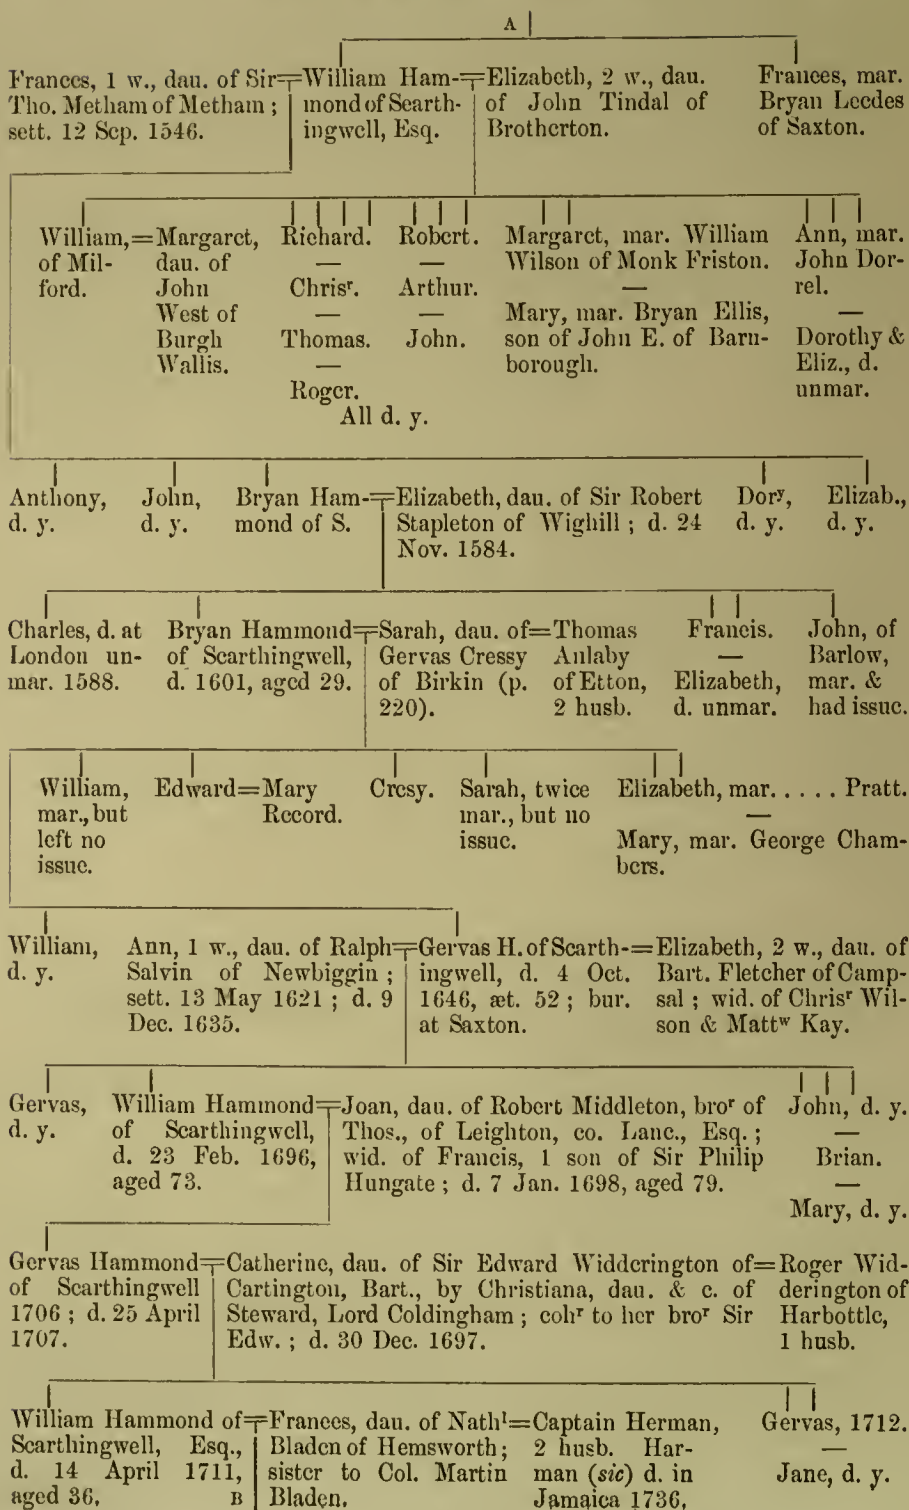 A
Frances, 1 w., dau. of Sir
Tho. Metham of Metham ;
sett. 12 Sep. 1546.
William Ham-
mond of Scarth-
ingwell, Esq.
Elizabeth, 2 w., dau.
of John Tindal of
Brotherton.
Frances, mar.
Bryan Leedes
of Saxton.
William,=
of Mil-
ford.
Margaret,
dau. of
John
West of
Burgh
Wallis.
Richard.
—
Chrisʳ.
—
Thomas.
—
Roger.
Robert.
—
Arthur.
—
John.
All d. y.
Margaret, mar. William
Wilson of Monk Friston.
—
Mary, mar. Bryan Ellis,
son of John E. of Barn-
borough.
Ann, mar.
John Dor-
rel.
—
Dorothy &
Eliz., d.
unmar.
Anthony,
d. y.
John,
d. y.
Bryan Ham-
mond of S.
Elizabeth, dau. of Sir Robert
Stapleton of Wighill ; d. 24
Nov. 1584.
Dorʸ,
d. y.
Elizab.,
d. y.
Charles, d. at
London un-
mar. 1588.
Bryan Hammond
of Scarthingwell,
d. 1601, aged 29.
Sarah, dau. of=
Gervas Cressy
of Birkin (p.
220).
Thomas
Anlaby
of Etton,
2 husb.
Francis.
—
Elizabeth,
d. unmar.
John, of
Barlow,
mar. &
had issue.
William,
mar., but
left no
issue.
Edward=
Mary
Record.
Cresy.
Sarah, twice
mar., but no
issue.
Elizabeth, mar. . . . . Pratt.
—
Mary, mar. George Cham-
bers.
William,
d. y.
Ann, 1 w., dau. of Ralph
Salvin of Newbiggin ;
sett. 13 May 1621 ; d. 9
Dec. 1635.
Gervas H. of Scarth-=
ingwell, d. 4 Oct.
1646, æt. 52 ; bur.
at Saxton.
Elizabeth, 2 w., dau. of
Bart. Fletcher of Camp-
sal ; wid. of Chrisʳ Wil-
son & Mattʷ Kay.
Gervas,
d. y.
William Hammond
of Scarthingwell,
d. 23 Feb. 1696,
aged 73.
Joan, dau. of Robert Middleton, broʳ of
Thos., of Leighton, co. Lanc., Esq. ;
wid. of Francis, 1 son of Sir Philip
Hungate ; d. 7 Jan. 1698, aged 79.
John, d. y.
—
Brian.
—
Mary, d. y.
Gervas Hammond
of Scarthingwell
1706 ; d. 25 April
1707.
Catherine, dau. of Sir Edward Widderington of=
Cartington, Bart., by Christiana, dau. & c. of
Steward, Lord Coldingham ; cohʳ to her broʳ Sir
Edw. ; d. 30 Dec. 1697.
Roger Wid-
derington of
Harbottle,
1 husb.
William Hammond of
Scarthingwell, Esq.,
d. 14 April 1711,
aged 36.
B
Frances, dau. of Nathˡ=
Bladen of Hemsworth ;
sister to Col. Martin
Bladen.
Captain Herman,
2 husb. Har-
man (sic) d. in
Jamaica 1736.
Gervas, 1712.
—
Jane, d. y.